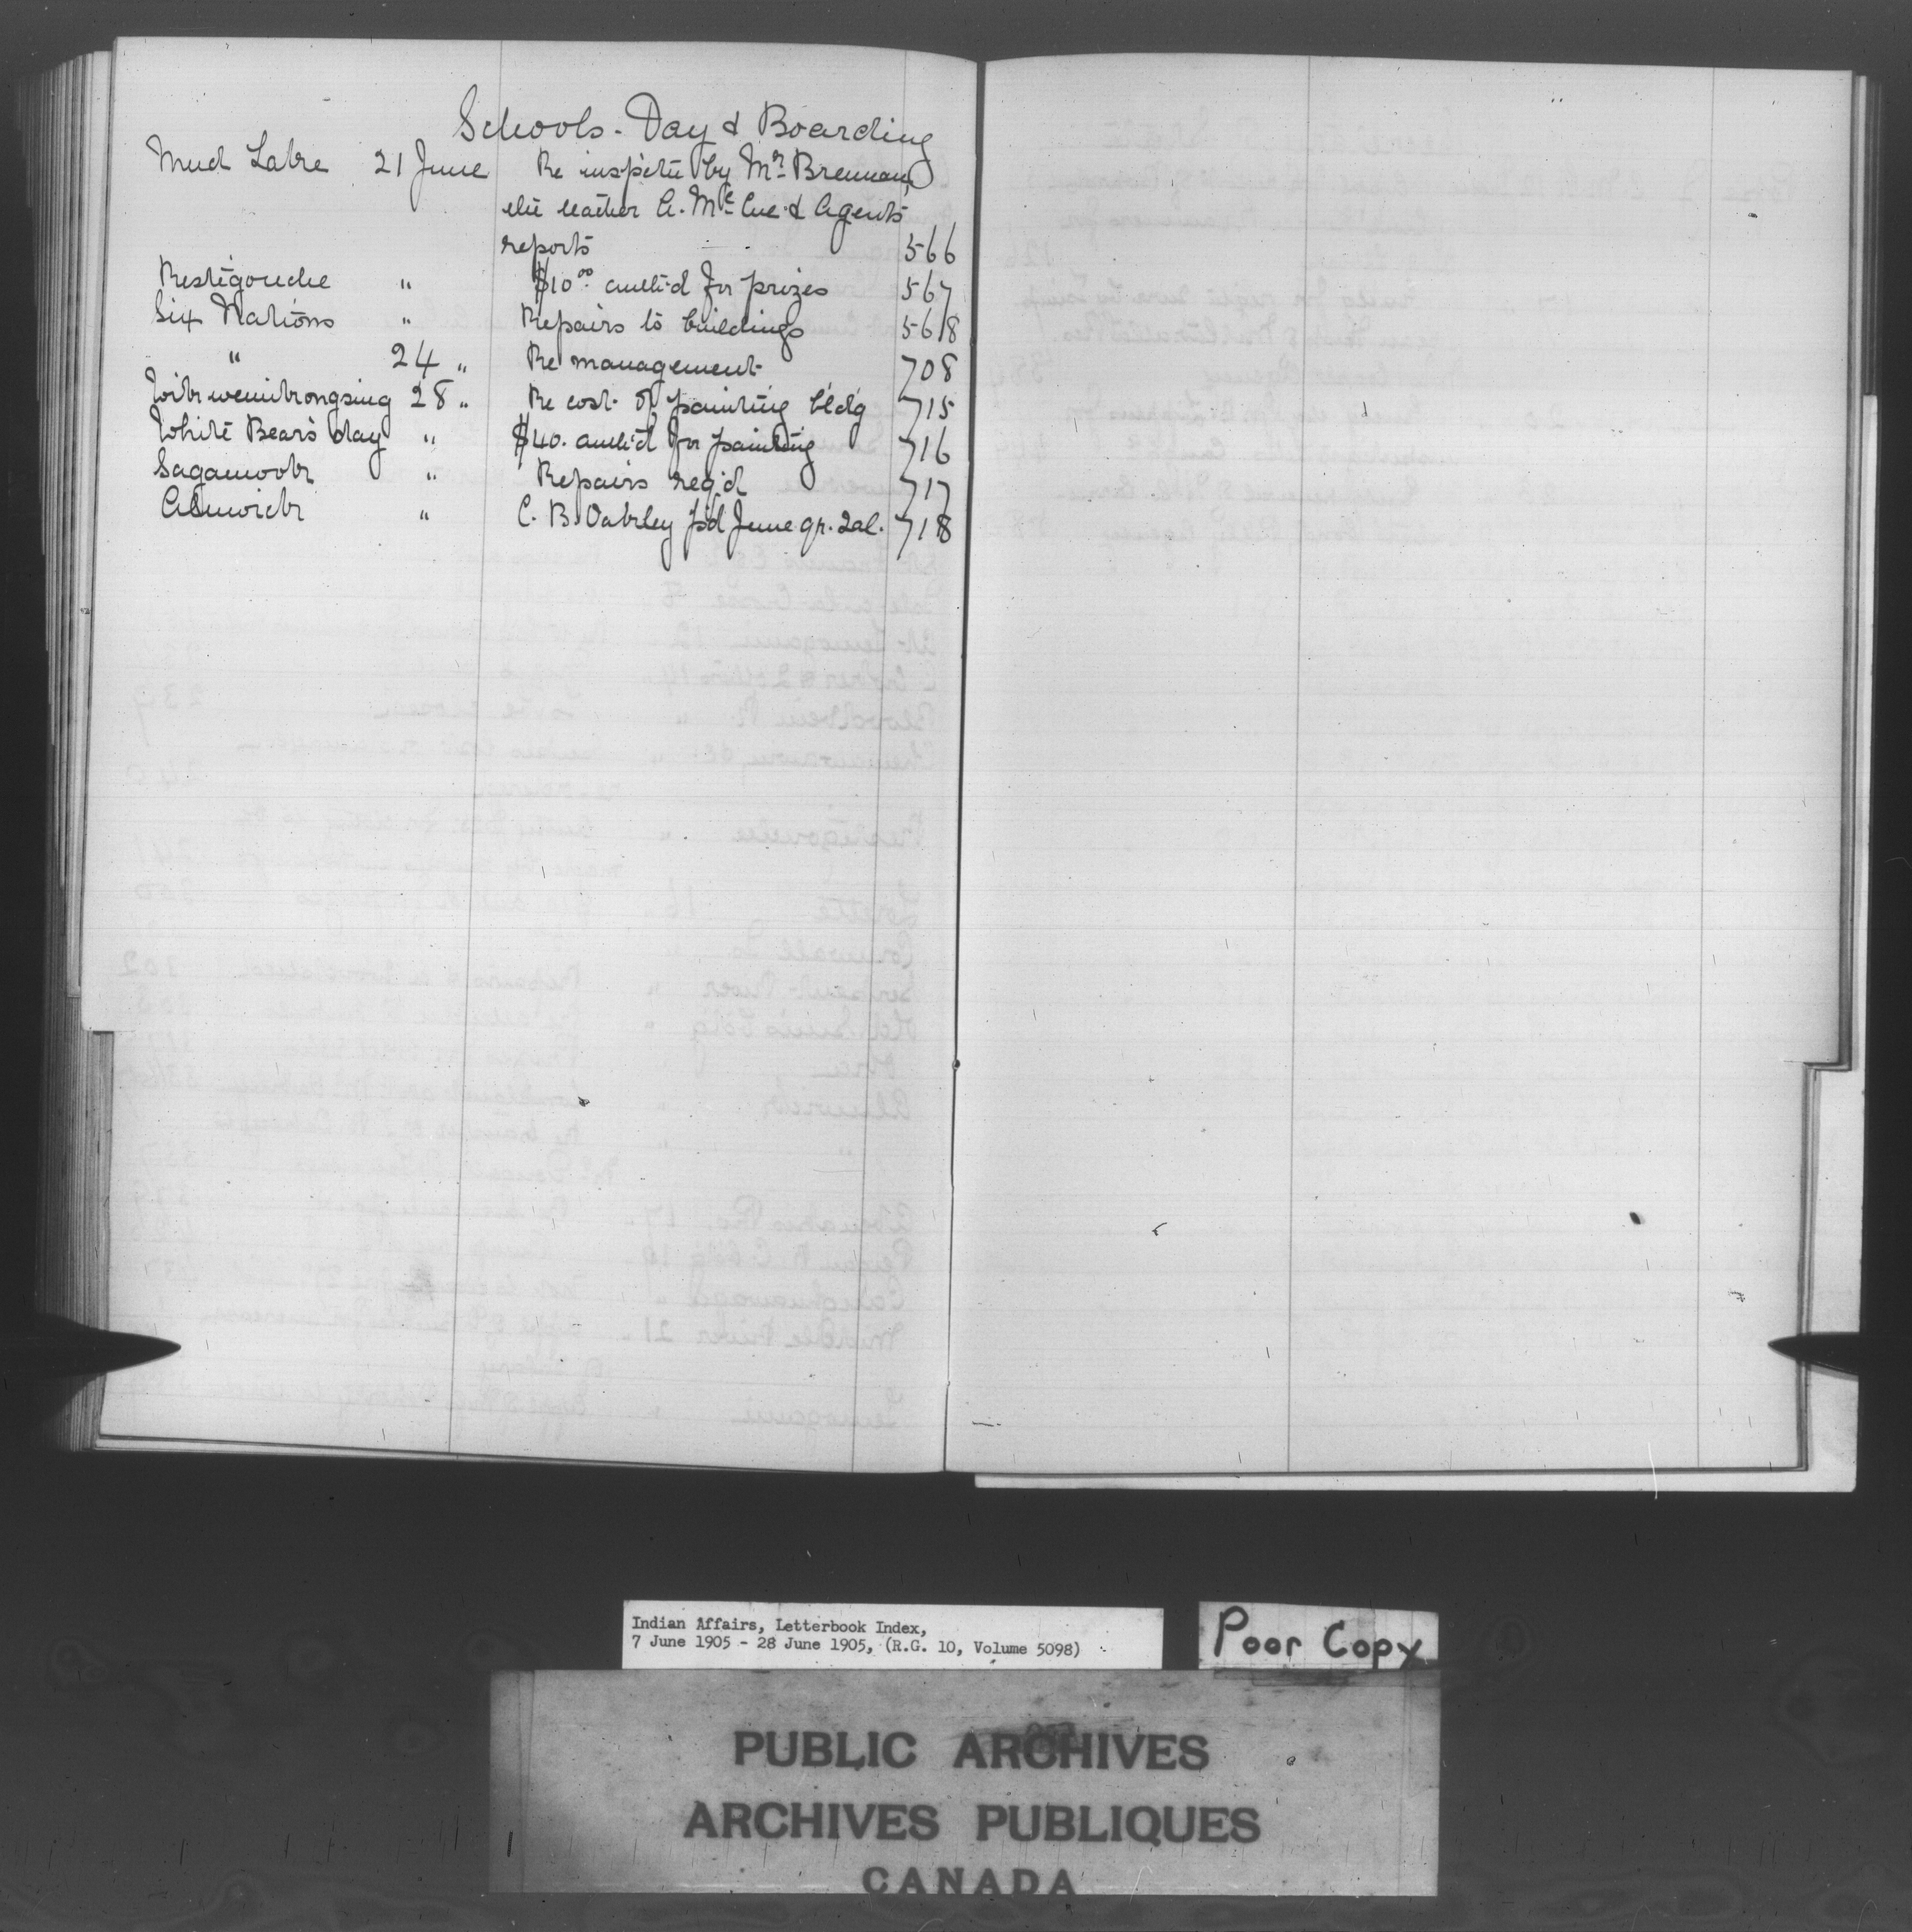 Schools - Day & Boarding
Mud Lake 21 June Re inspectn by Mr Brennan,
the teacher A. McCue & Agents
reports 566
Restigouche " $10.00 auth'd for prizes 567
Six Nations " Repairs to buildings 568
" 24 " Re management 708
Wikwemikongsing 28 " Re cost of painting bldg 715
White Bear's day " $40. auth'd for painting 716
Sagamook " Repairs req'd 717
Alnwick " C. B. Oakley p'd June qr. sal. 718
Indian Affairs, Letterbook Index,
7 June 1905 - 28 June 1905, (R.G. 10, Volume 5098)
Poor Copy
PUBLIC ARCHIVES
ARCHIVES PUBLIQUES
CANADA